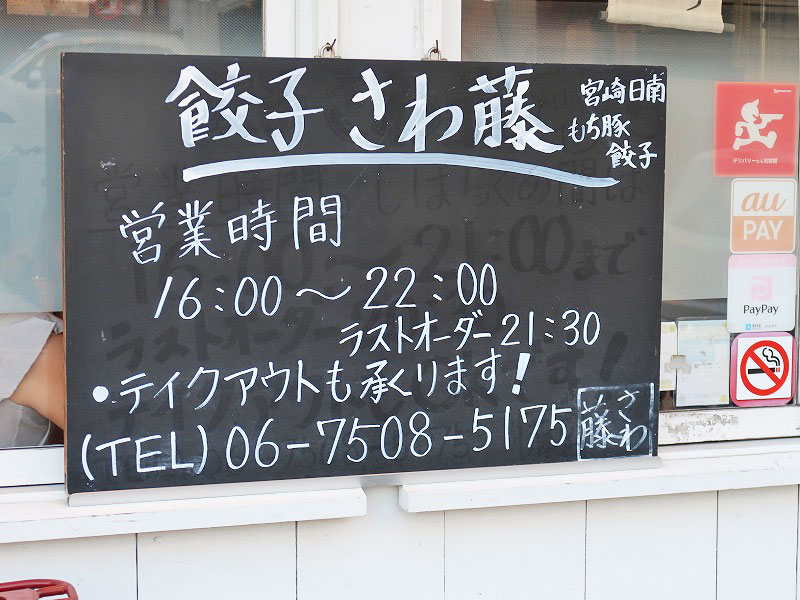 餃子 さわ藤
宮崎日南
もち豚
餃子
営業時間
16:00〜22:00
ラストオーダー21:30
・テイクアウトも承くります!
(TEL) 06-7508-5175
さわ
藤
デリバリーなら出前館
au
PAY
PayPay